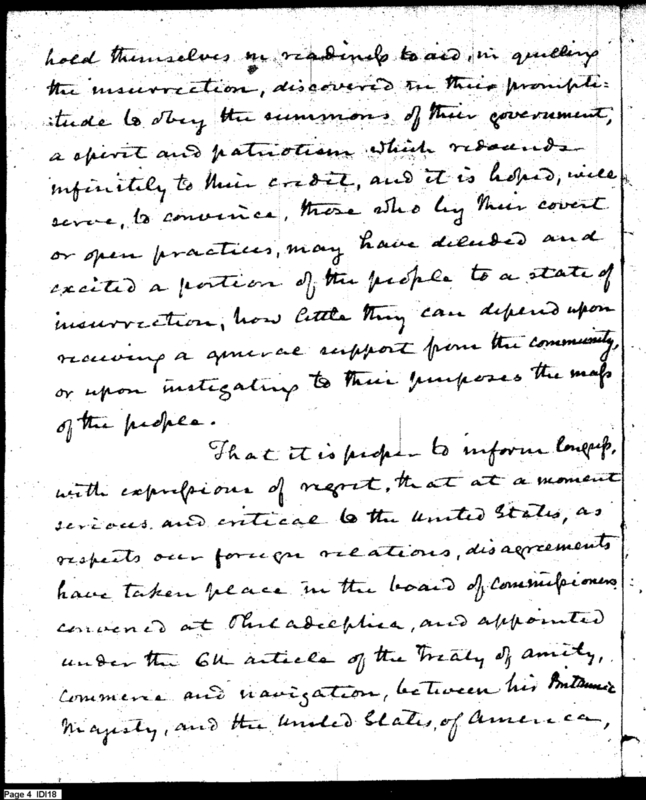 hold themselves in readiness to aid, in quelling
the insurrection, discovered in their prompti=
=tude to obey the summons of their government,
a spirit and patriotism which redounds
infinitely to their credit, and it is hoped, will
serve, to convince, those who by their covert
or open practices, may have deluded and
excited a portion of the people to a state of
insurrection, how little they can depend upon
receiving a general support from the community,
or upon instigating to their purposes the mass
of the people.
That it is proper to inform Congress,
with expressions of regret, that at a moment
serious and critical to the United States, as
respects our foreign relations, disagreements
have taken place in the board of commissioners
convened at Philadelphia, and appointed
under the 6th article of the Treaty of amity,
commerce and navigation, between his Britannic
Majesty, and the United States, of America,
Page 4 IDI18